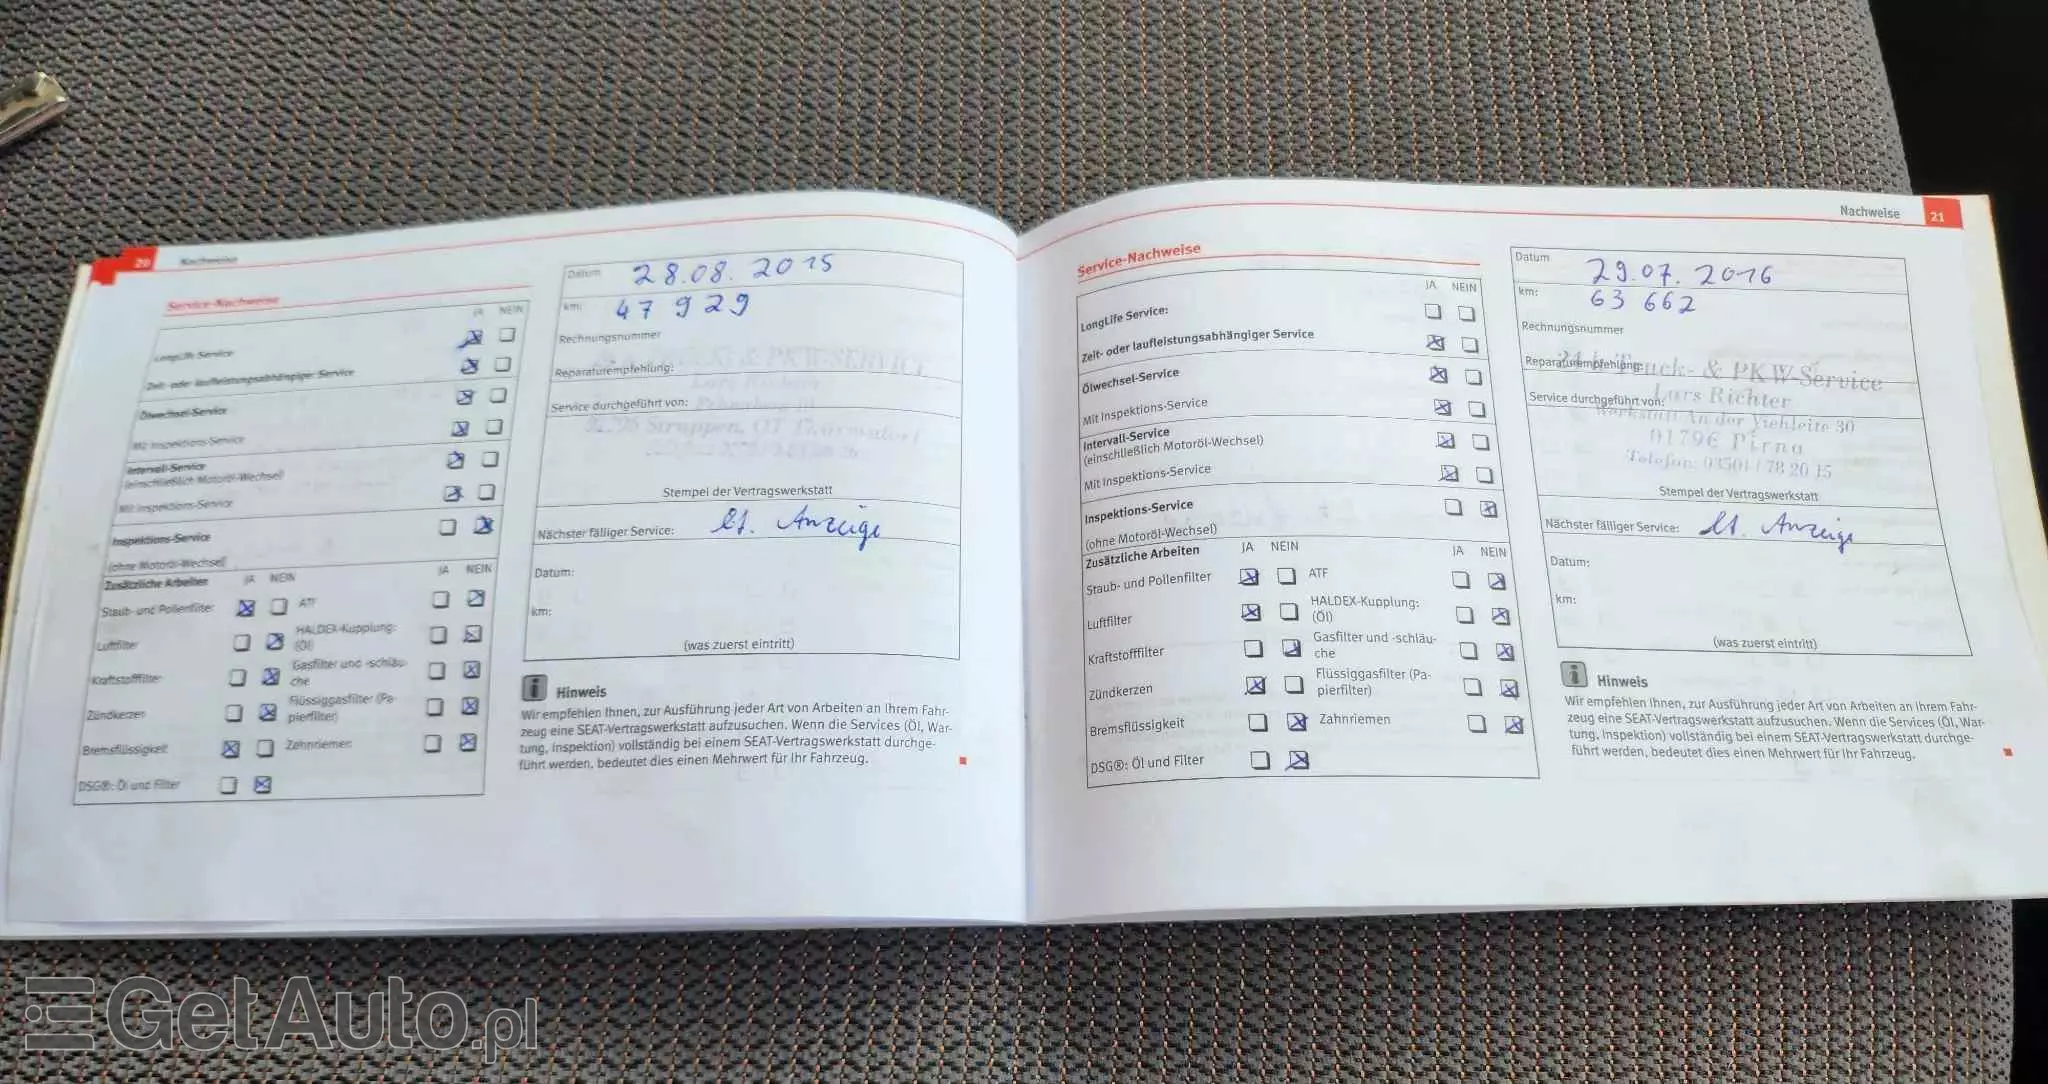 20 Nachweise
Service-Nachweise
JA NEIN
LongLife Service
Zeit- oder laufleistungsabhängiger Service
Ölwechsel-Service
Mit Inspektions-Service
Intervall-Service
(einschließlich Motoröl-Wechsel)
Mit Inspektions-Service
Inspektions-Service
(ohne Motoröl-Wechsel)
Zusätzliche Arbeiten JA NEIN JA NEIN
Staub- und Pollenfilter ATF
Luftfilter HALDEX-Kupplung:
(Öl)
Kraftstofffilter Gasfilter und -schläu-
che
Zündkerzen Flüssiggasfilter (Pa-
pierfilter)
Bremsflüssigkeit Zahnriemen
DSG®: Öl und Filter
Datum 28.08.2015
km: 47 929
Rechnungsnummer
Reparaturempfehlung:
& PKW-SERVICE
Service durchgeführt von:
Struppen, OT
Stempel der Vertragswerkstatt
Nächster fälliger Service: lt. Anzeige
Datum:
km:
(was zuerst eintritt)
i Hinweis
Wir empfehlen Ihnen, zur Ausführung jeder Art von Arbeiten an Ihrem Fahr-
zeug eine SEAT-Vertragswerkstatt aufzusuchen. Wenn die Services (Öl, War-
tung, Inspektion) vollständig bei einem SEAT-Vertragswerkstatt durchge-
führt werden, bedeutet dies einen Mehrwert für Ihr Fahrzeug.
Nachweise 21
Service-Nachweise
JA NEIN
LongLife Service:
Zeit- oder laufleistungsabhängiger Service
Ölwechsel-Service
Mit Inspektions-Service
Intervall-Service
(einschließlich Motoröl-Wechsel)
Mit Inspektions-Service
Inspektions-Service
(ohne Motoröl-Wechsel)
Zusätzliche Arbeiten JA NEIN JA NEIN
Staub- und Pollenfilter ATF
Luftfilter HALDEX-Kupplung:
(Öl)
Kraftstofffilter Gasfilter und -schläu-
che
Zündkerzen Flüssiggasfilter (Pa-
pierfilter)
Bremsflüssigkeit Zahnriemen
DSG®: Öl und Filter
Datum 29.07.2016
km: 63 662
Rechnungsnummer
Reparaturempfehlung:
Truck- & PKW-Service
Lars Richter
Service durchgeführt von:
Werkstatt An der Viehleite 30
01796 Pirna
Telefon: 03501 / 78 20 15
Stempel der Vertragswerkstatt
Nächster fälliger Service: lt. Anzeige
Datum:
km:
(was zuerst eintritt)
i Hinweis
Wir empfehlen Ihnen, zur Ausführung jeder Art von Arbeiten an Ihrem Fahr-
zeug eine SEAT-Vertragswerkstatt aufzusuchen. Wenn die Services (Öl, War-
tung, Inspektion) vollständig bei einem SEAT-Vertragswerkstatt durchge-
führt werden, bedeutet dies einen Mehrwert für Ihr Fahrzeug.
GetAuto.pl